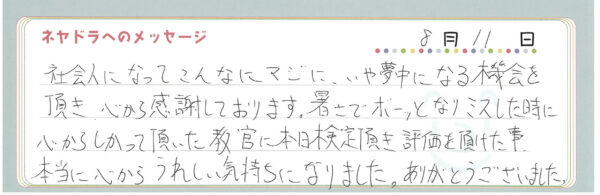 ネヤドラへのメッセージ
8月11日
社会人になってこんなにマジに、いや夢中になる機会を
頂き、心から感謝しております。暑さでボーッとなりミスした時に
心からしかって頂いた教官に本日検定頂き評価を頂けた事、
本当に心からうれしい気持ちになりました。ありがとうございました。